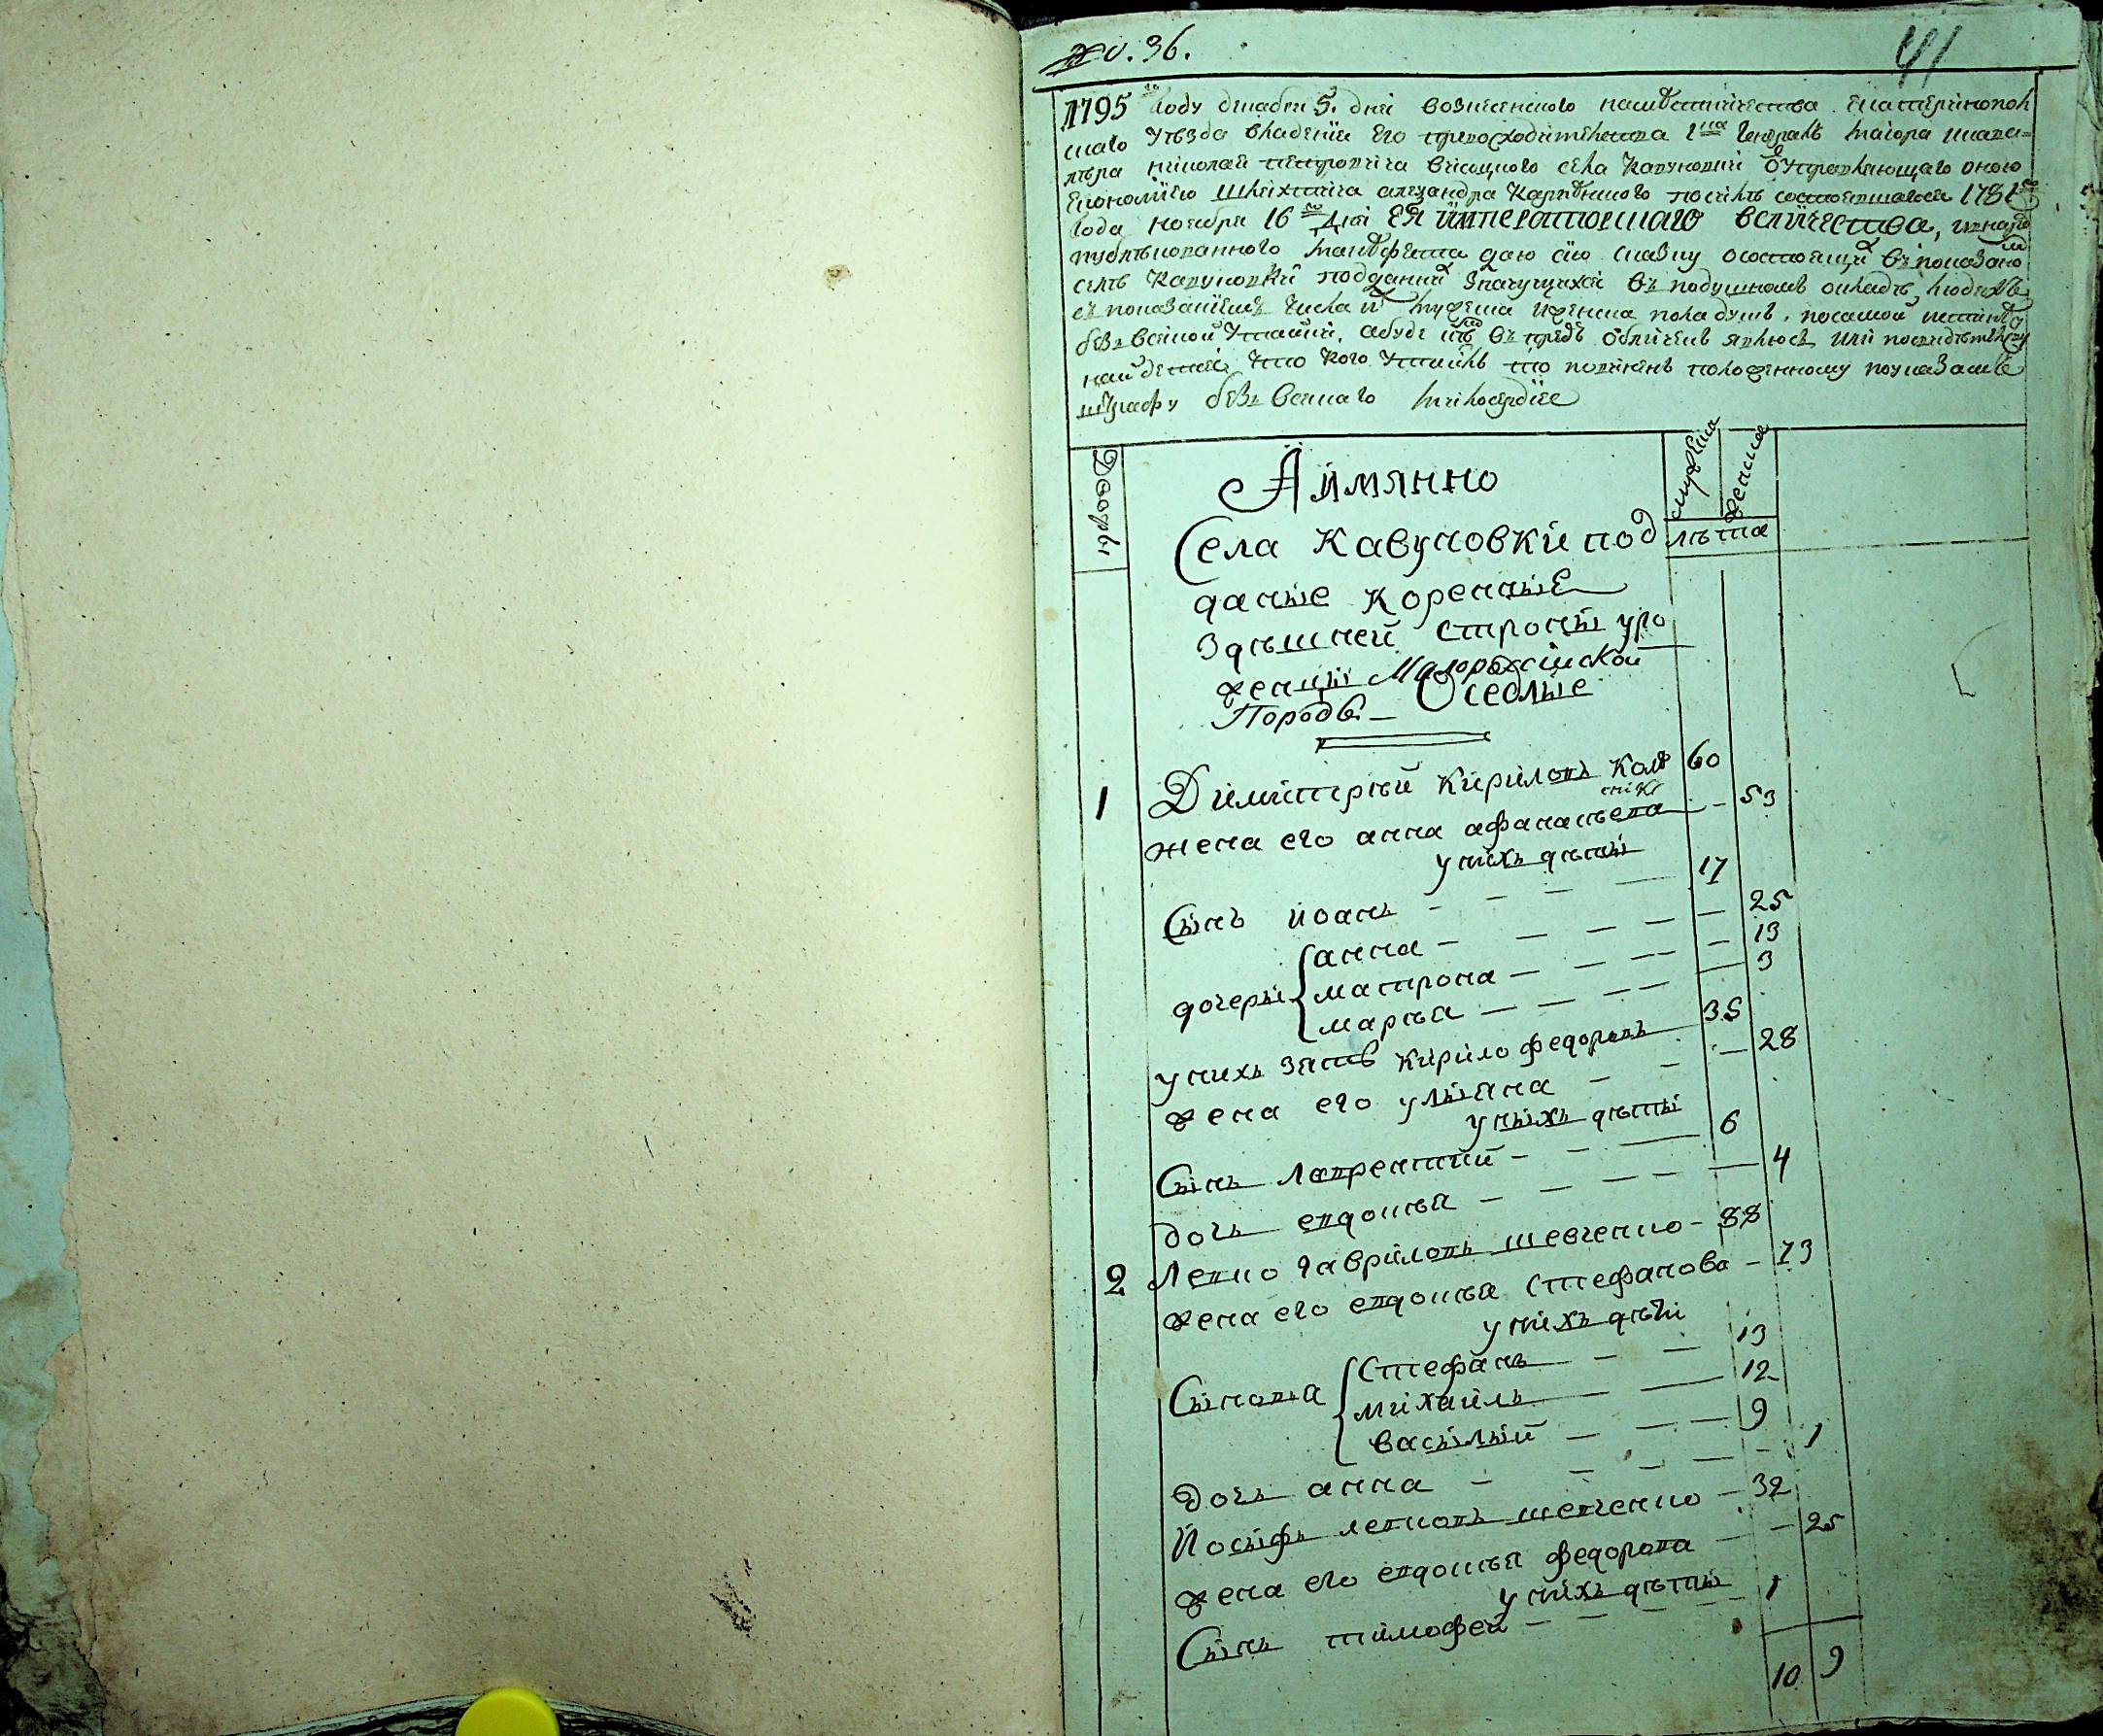 №. 36.
41
1795 году декабря 5. дня вознесенского намѣстничества Екатеринопол
скаго уѣзда владения Его превосходительства гна Генералъ маіора икава-
лѣра николая петровича села Кавуновки управляющаго оною
Економиею шляхтича александра посилѣ состоявшагося 1781го
года ноября 16го дня ЕЯ императорскаго величества, ивнарѣ
публѣкованного манѣфеста даю сию скаску осостоящих въпоказано
селѣ Кавуновки подданих значущихся въ подушномъ окладѣ людехъ
съ показаниемъ числа мужеска иженска пола душъ, посамой
безъ всякой утайки, абуде въ предь обличенъ явлюсь или
найдется что кого утаилъ то повиненъ положенному поуказамъ
штрафу безъ всякаго милосердїя
Дворы
Аймянно
мужеска
женска
Села Кавуновки под
лѣта
даные коренные
здѣшней строны уро
женцы Малоросійской
Породы — Оседлые
1 Димитрый Кириловъ Колѣ 60
снікъ
жена его анна афанасьева - 53
унихъ дѣти
Сынъ иоанъ - - - 17
дочеры анна - - - 25
матрона - - - 13
марыя - - - 3
унихъ зять Кирило федоровъ 35
жена его улыяна - - - 28
унихъ дѣты
Сынъ лаврентий - - - 6
дочь евдокия - - - 4
2 Левко гавриловъ шевченко - 88
жена его евдокия стефанова - 73
унихъ дѣти
Сыновья стефанъ - - 13
михаилъ - - 12
василый - - - 9
дочь анна - - - 1
Иосифъ левковъ шевченко - 32
жена его евдокия федорова - - 25
унихъ дѣты
Сынъ тимофей - - - 1
10 9